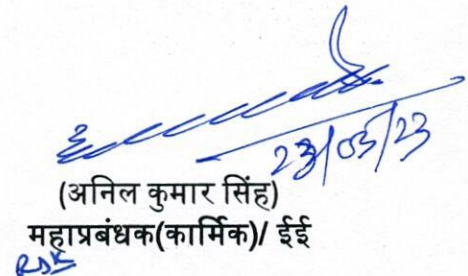 23/03/23
(अनिल कुमार सिंह)
महाप्रबंधक(कार्मिक)/ ईई